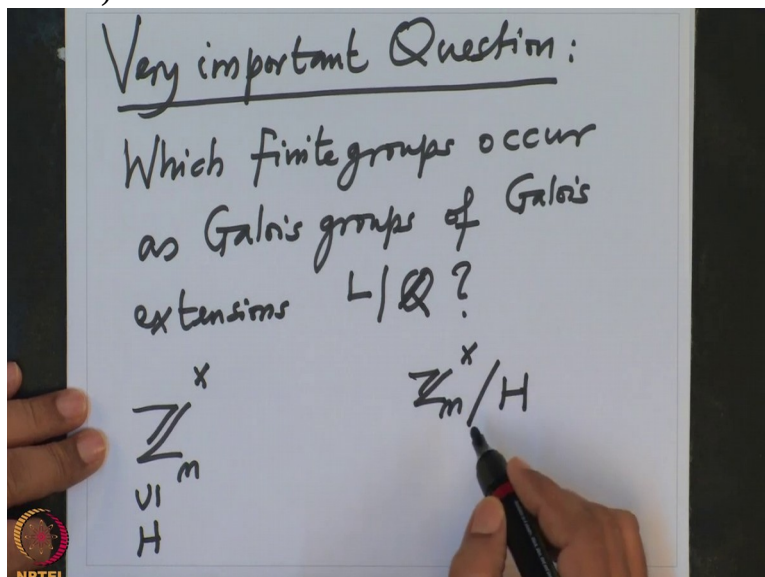 Very important Question:
Which finite groups occur
as Galois groups of Galois
extensions L|Q?
ℤₘˣ ℤₘˣ/H
UI
H
NPTEL